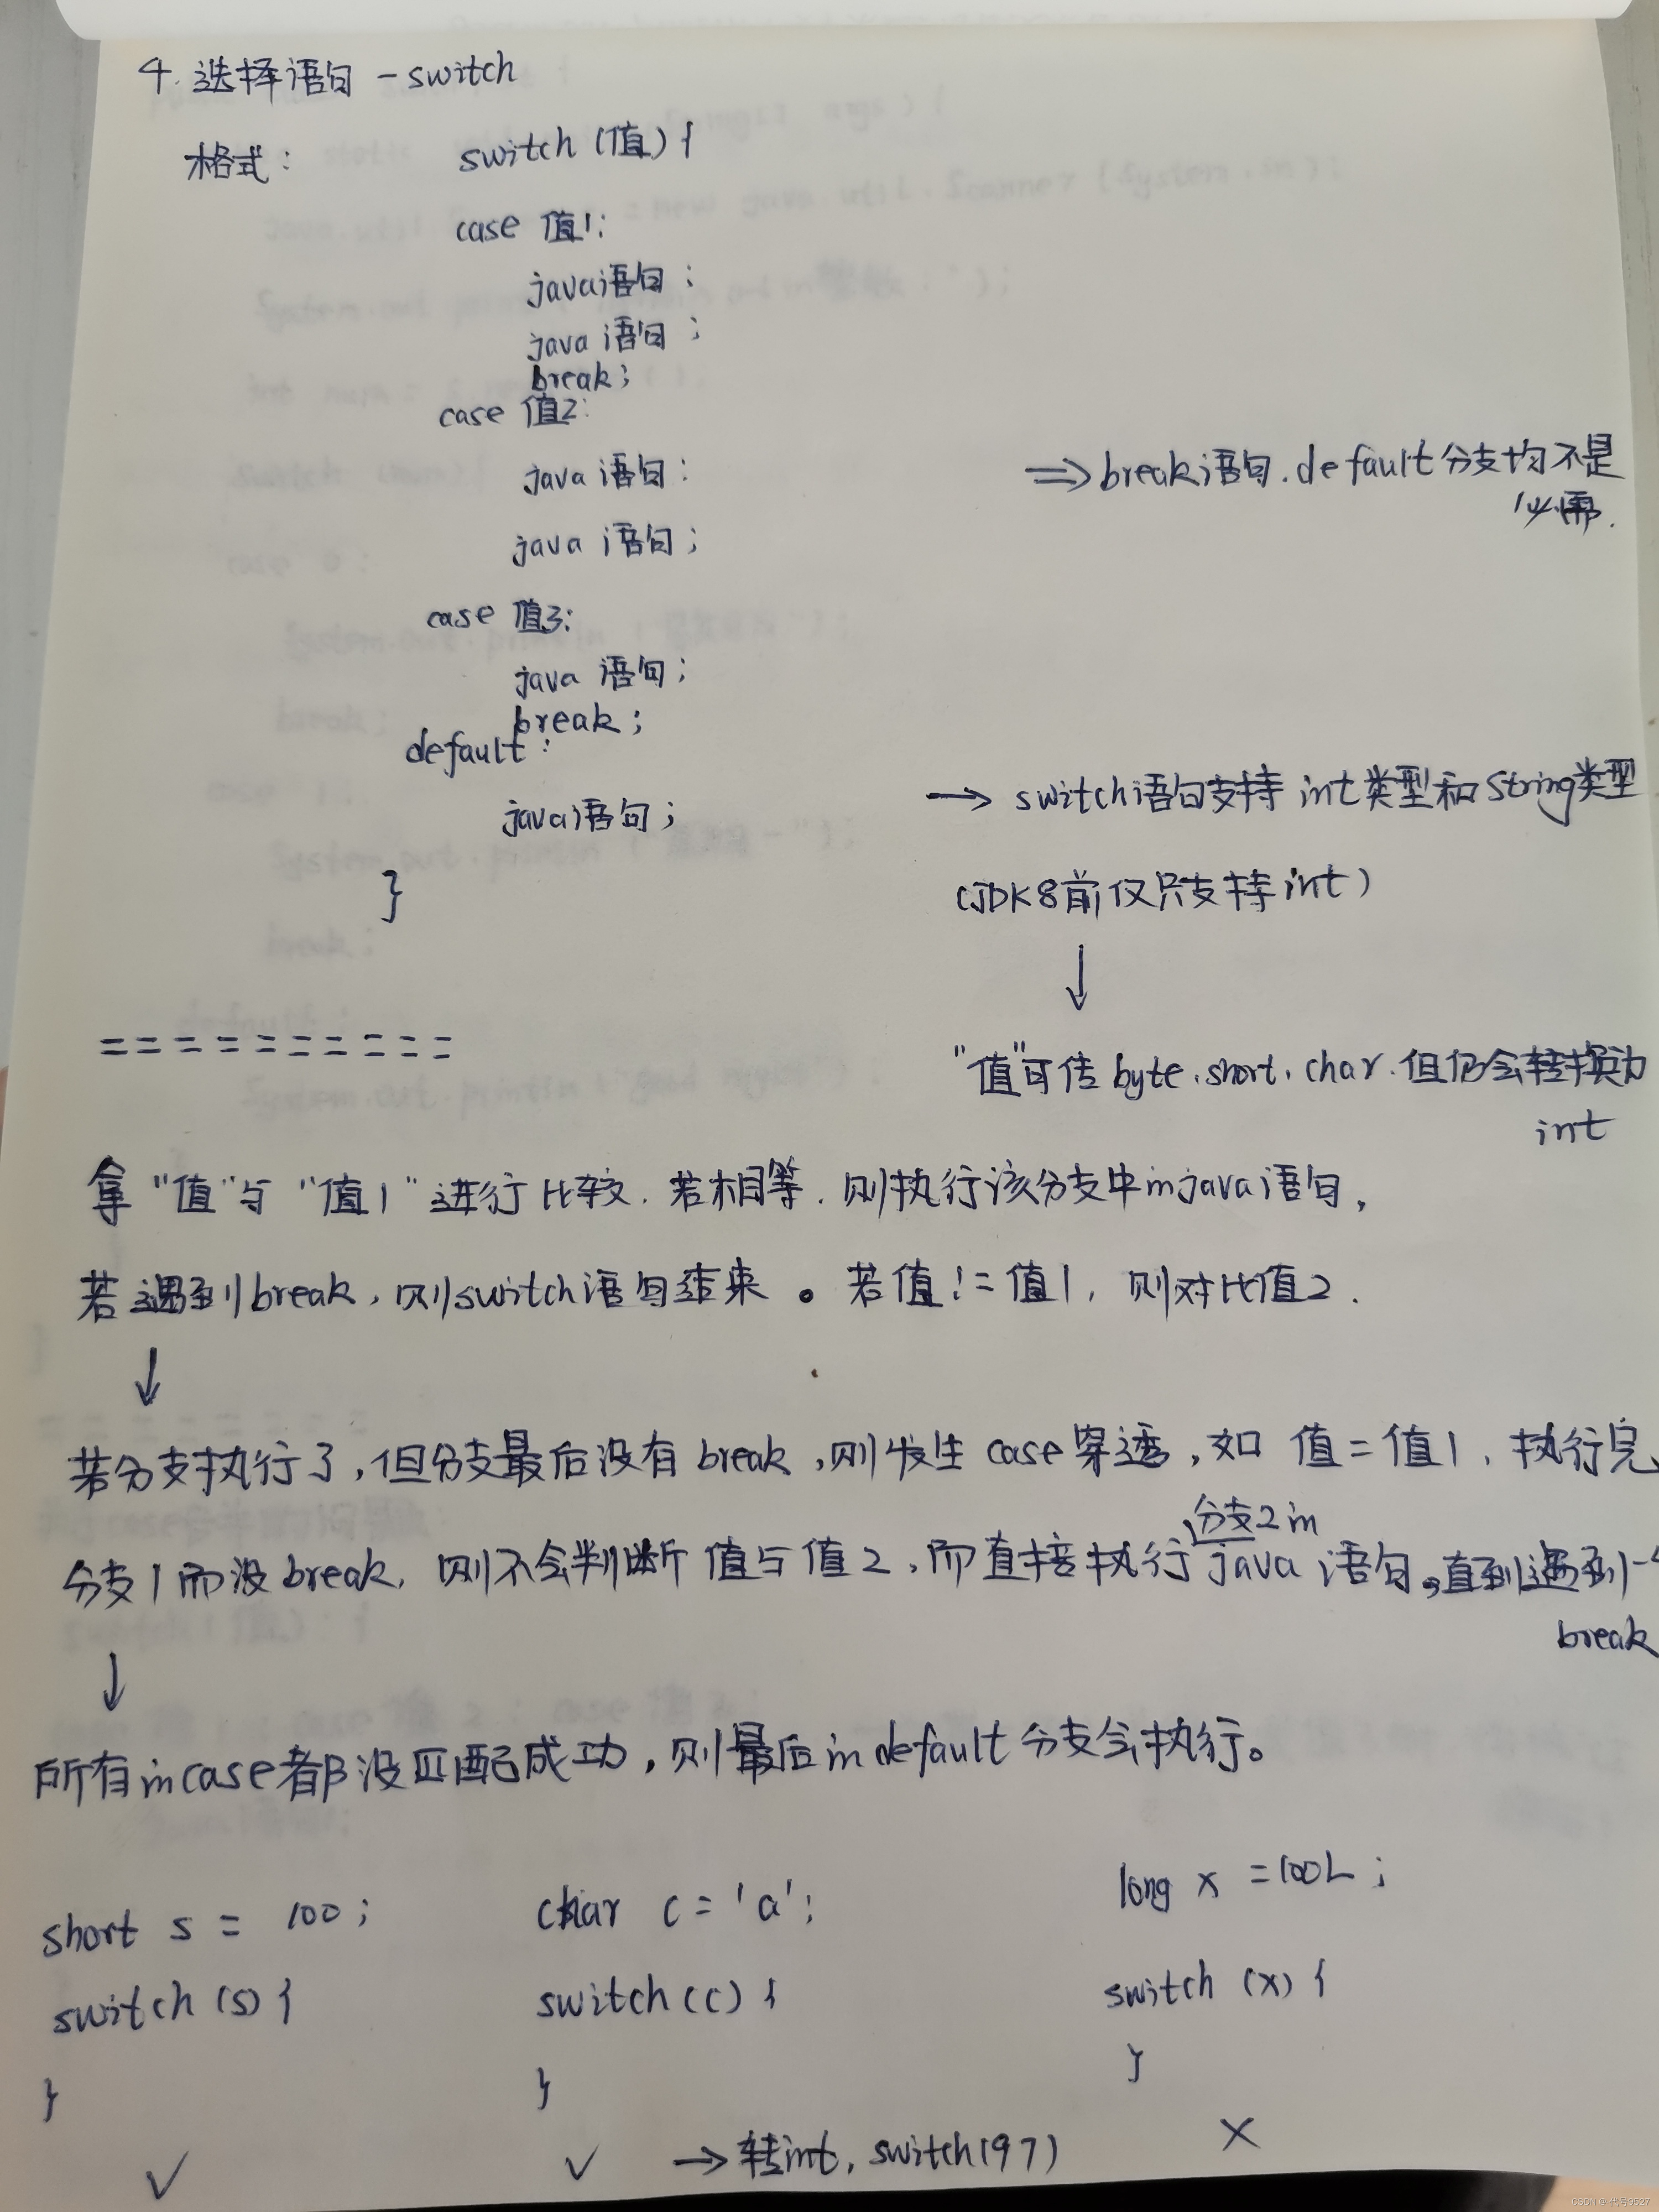 4. 选择语句 - switch
格式: switch (值) {
case 值1:
java语句;
java 语句;
break;
case 值2:
java 语句:
⇒ break语句.default分支均不是
必需.
java 语句;
case 值3:
java 语句;
break;
default:
→ switch语句支持 int类型和String类型
java语句;
}
(JDK8前仅只支持int)
↓
==========
"值"可传 byte.short.char.但仍会转换为
int
拿 "值"与 "值1" 进行比较.若相等.则执行该分支中的java语句,
若遇到break,则switch语句结束。若值!=值1,则对比值2.
↓
若分支执行了,但分支最后没有break,则发生case穿透,如 值=值1,执行完
分支2的
分支1而没break,则不会判断 值与值2,而直接执行java 语句,直到遇到一个
break
↓
所有的case都没匹配成功,则最后的default分支会执行。
short s = 100; char c = 'a'; long x = 100L;
switch (s) { switch (c) { switch (x) {
} } }
✓ ✓ → 转int, switch(97) ×
CSDN @代号9527